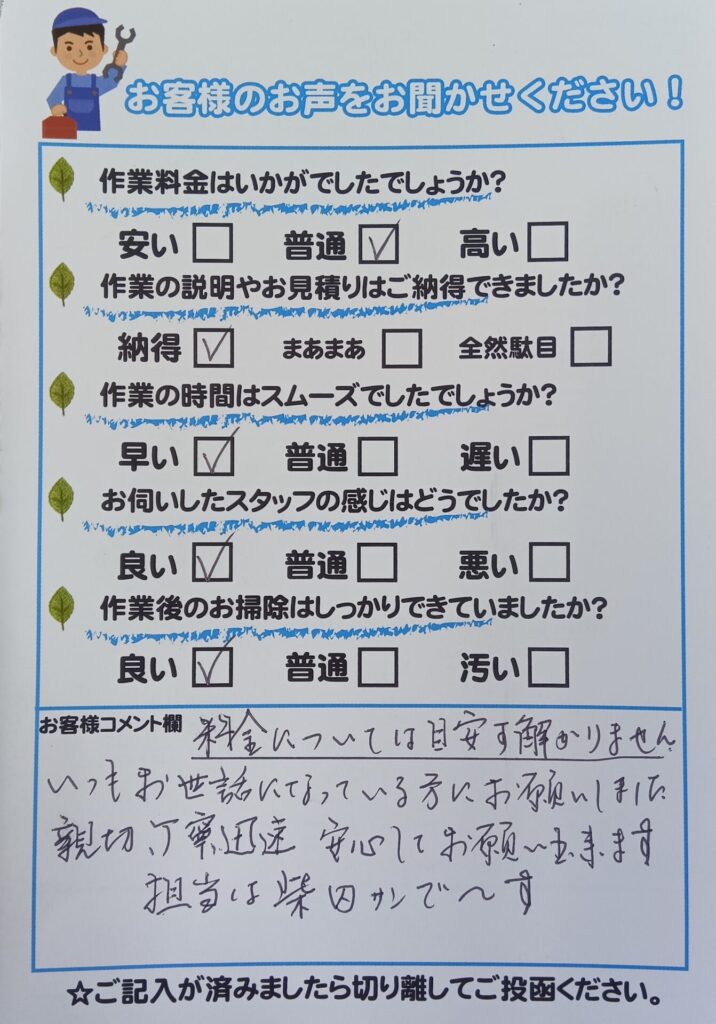 お客様のお声をお聞かせください!
作業料金はいかがでしたでしょうか?
安い□ 普通☑ 高い□
作業の説明やお見積りはご納得できましたか?
納得☑ まあまあ□ 全然駄目□
作業の時間はスムーズでしたでしょうか?
早い☑ 普通□ 遅い□
お伺いしたスタッフの感じはどうでしたか?
良い☑ 普通□ 悪い□
作業後のお掃除はしっかりできていましたか?
良い☑ 普通□ 汚い□
お客様コメント欄 料金については目安す解かりません
いつもお世話になっている方にお願いしました
親切、丁寧、迅速 安心してお願い出来ます
担当は柴田サンで〜す
☆ご記入が済みましたら切り離してご投函ください。